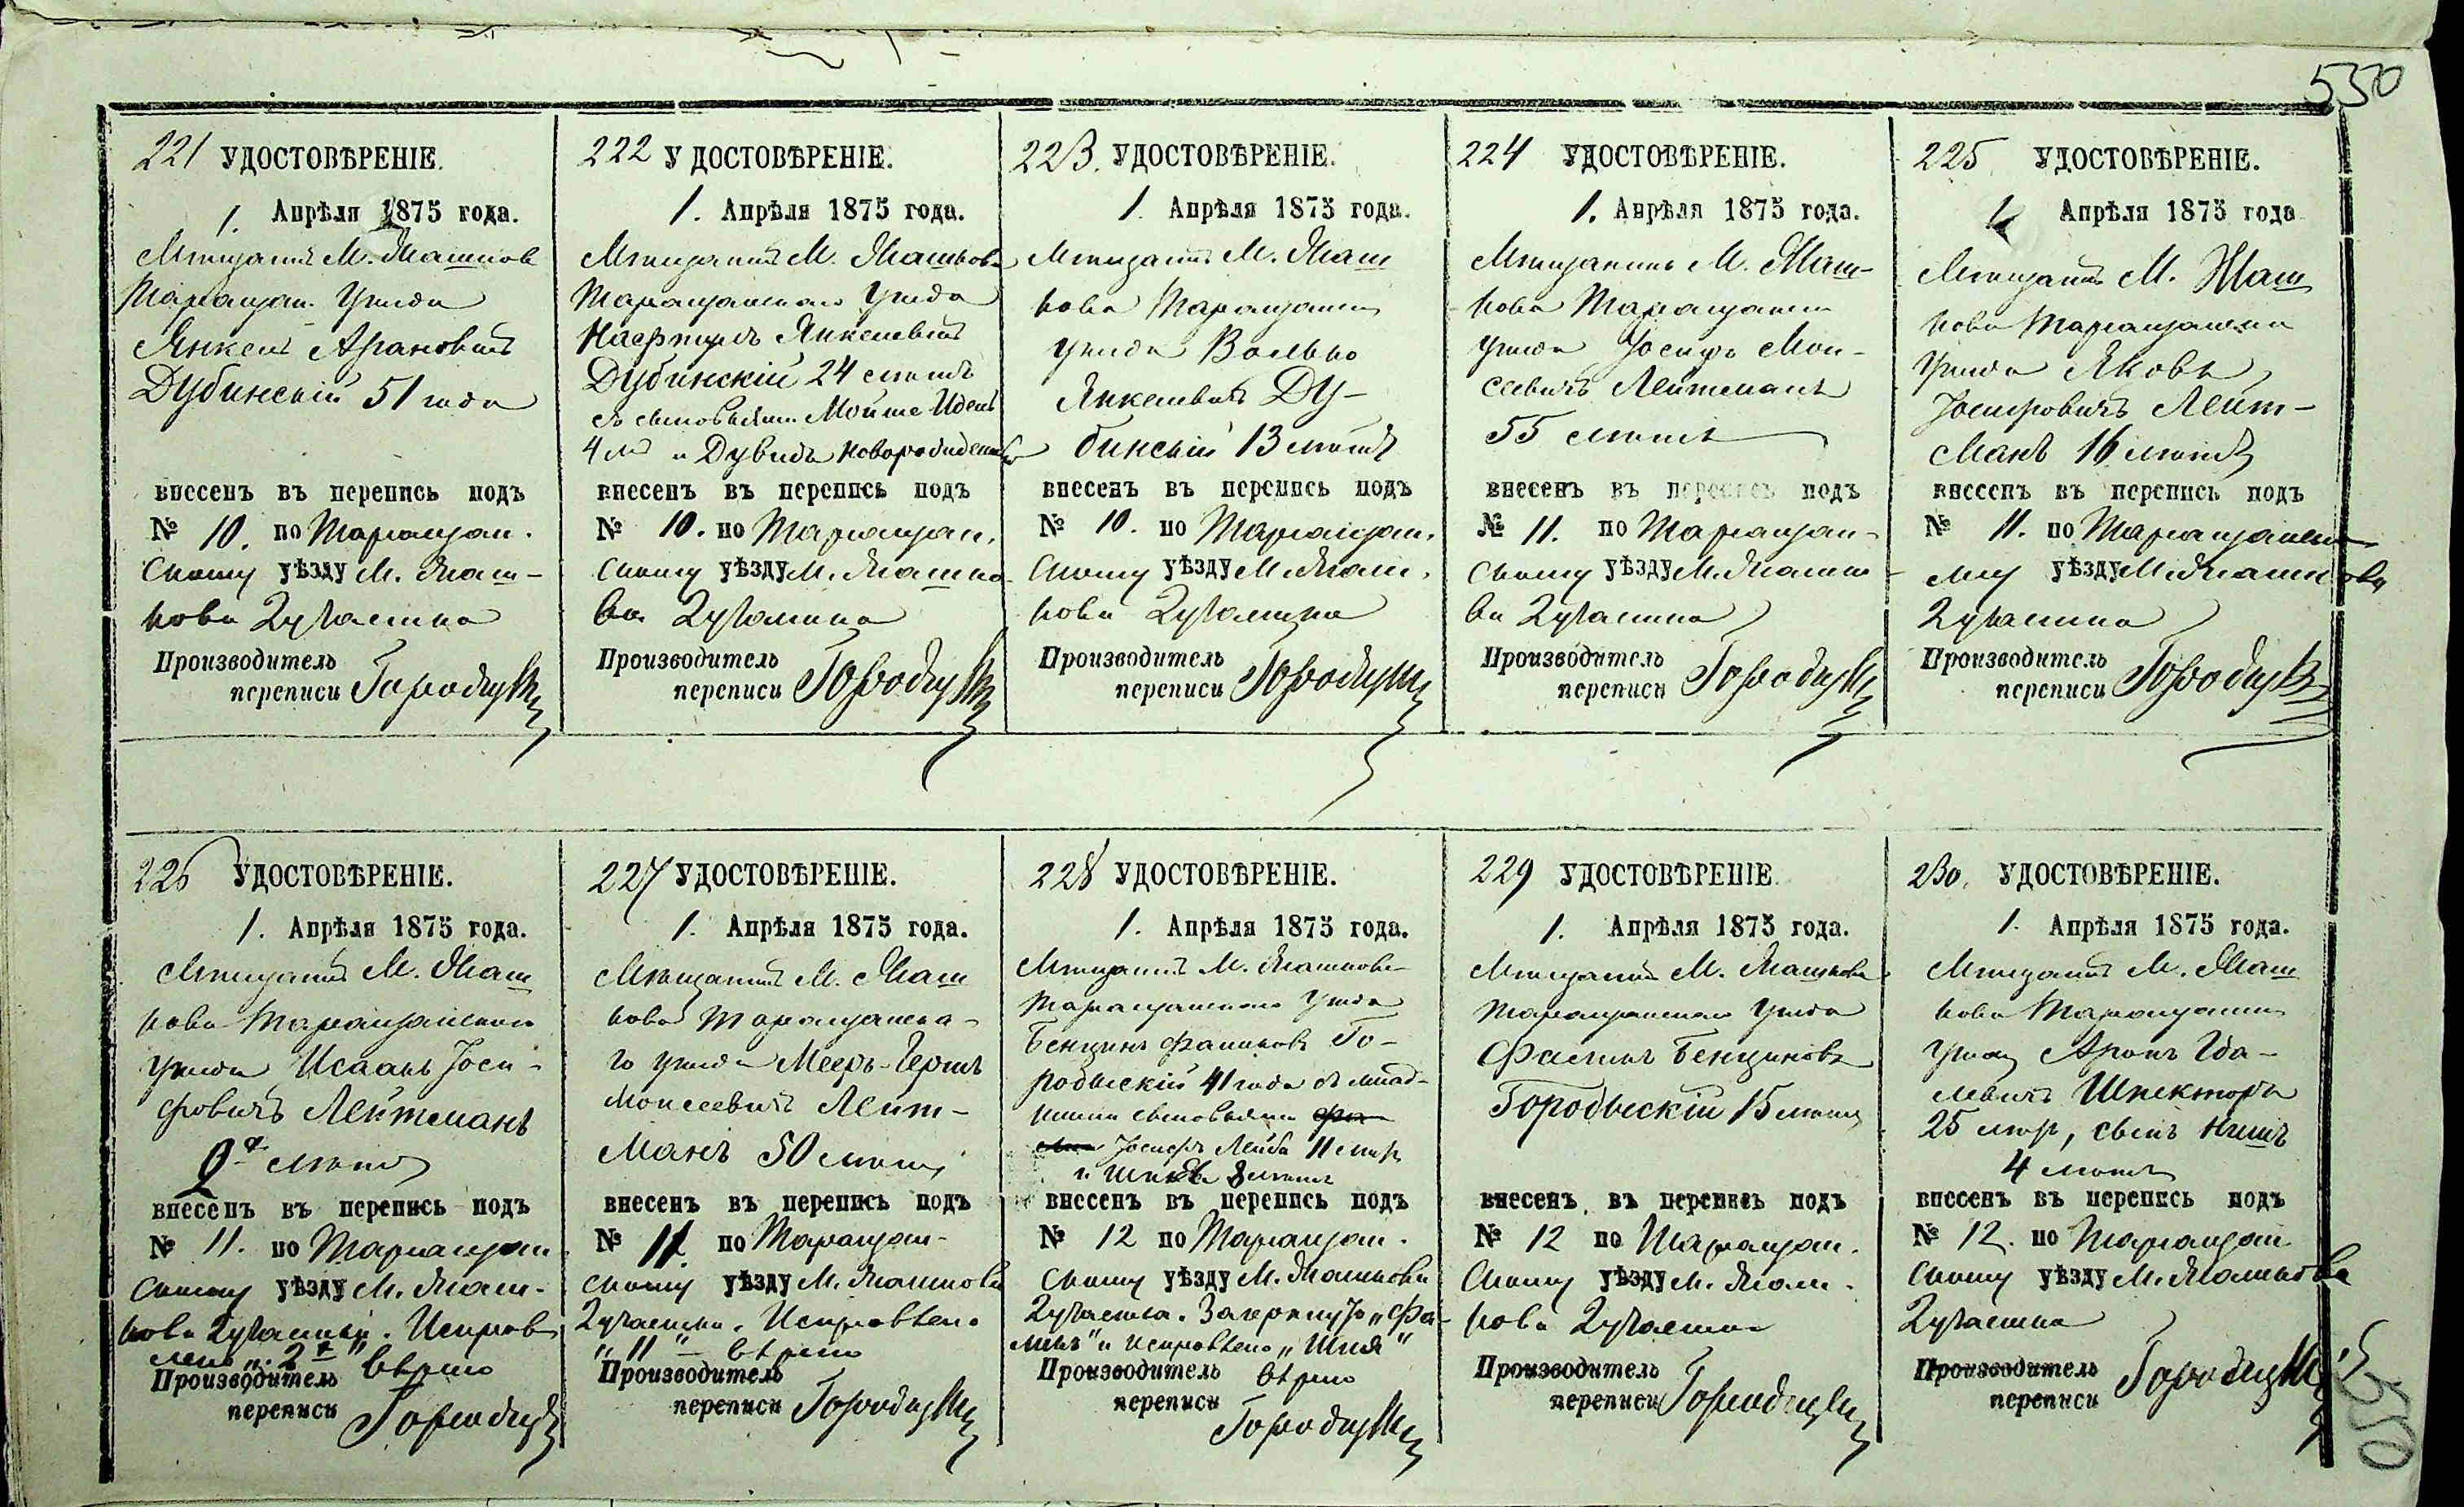 550
221 УДОСТОВѢРЕНІЕ.
1. Апрѣля 1875 года.
Мѣщанинъ М. Жашков
Таращан. Уѣзда
Янкель Ароновичъ
Дубинскій 51 года
внесенъ въ перепись подъ
№ 10. по Таращан.
скому уѣзду М. Жаш-
кова 2 участка
Производитель
переписи Городецкій
222 УДОСТОВѢРЕНІЕ.
1. Апрѣля 1875 года.
Мѣщанинъ М. Жашкова
Таращанскаго Уѣзда
Нафтулъ Янкелевичъ
Дубинскій 24 лѣтъ
съ сыновьями Мойше-Идель
4 л. и Дувидъ новорожденный
внесенъ въ перепись подъ
№ 10. по Таращан.
скому уѣзду М. Жашко-
ва 2 участка
Производитель
переписи Городецкій
223. УДОСТОВѢРЕНІЕ.
1 Апрѣля 1875 года.
Мѣщанинъ М. Жаш
кова Таращанск
уѣзда Волько
Янкелевичъ Ду-
бинскій 13 лѣтъ
внесенъ въ перепись подъ
№ 10. по Таращан.
скому уѣзду М. Жаш.
кова 2 участка
Производитель
переписи Городецкій
224 УДОСТОВѢРЕНІЕ.
1. Апрѣля 1875 года.
Мѣщанинъ М. Жаш-
кова Таращанск
уѣзда Іосифъ Мои-
сеевичъ Лейтманъ
55 лѣтъ
внесенъ въ перепись подъ
№ 11. по Таращан-
скому уѣзду М. Жашко-
ва 2 участка
Производитель
переписи Городецкій
225 УДОСТОВѢРЕНІЕ.
1 Апрѣля 1875 года
Мѣщанинъ М. Жаш
кова Таращанска
Уѣзда Яковъ
Іосифовичъ Лейт-
манъ 16 лѣтъ
внесенъ въ перепись подъ
№ 11. по Таращанско
му уѣзду М. Жашкова
2 участка
Производитель
переписи Городецкій
226 УДОСТОВѢРЕНІЕ.
1. Апрѣля 1875 года.
Мѣщанинъ М. Жаш
кова Таращанскаго
уѣзда Исаакъ Іоси-
фовичъ Лейтманъ
лѣтъ
внесенъ въ перепись подъ
№ 11. по Таращан
скому уѣзду М. Жаш-
кова 2 участка. Исправ
лено вѣрно
Производитель
переписи Городецкій
227 УДОСТОВѢРЕНІЕ.
1. Апрѣля 1875 года.
Мѣщанинъ М. Жаш
кова Таращанска-
го уѣзда Мееръ-Гершъ
Моисеевичъ Лейт-
манъ 50 лѣтъ
внесенъ въ перепись подъ
№ 11. по Таращан-
скому уѣзду М. Жашкова
2 участка. Исправлено
„11" вѣрно
Производитель
переписи Городецкій
228 УДОСТОВѢРЕНІЕ.
1. Апрѣля 1875 года.
Мѣщанинъ М. Жашкова
Таращанскаго уѣзда
Бенціинъ Го-
родыскій 41 года съ млад-
шими сыновьями
Іосифъ Лейба 11 лѣтъ
и Шнея 8 лѣтъ
внесенъ въ перепись подъ
№ 12 по Таращан.
скому уѣзду М. Жашкова
2 участка. Зачеркнуто „Фа-
" и исправлено „Шнея"
Производитель вѣрно
переписи
Городецкій
229 УДОСТОВѢРЕНІЕ
1. Апрѣля 1875 года.
Мѣщанинъ М. Жашкова
Таращанскаго уѣзда
Бенциновъ
Городыскій 15 лѣтъ
внесенъ въ перепись подъ
№ 12 по Таращан.
скому уѣзду М. Жаш-
кова 2 участка
Производитель
переписи Городецкій
230. УДОСТОВѢРЕНІЕ.
1. Апрѣля 1875 года.
Мѣщанинъ М. Жаш
кова Таращанск
уѣзда Аронъ Гда-
левичъ Шпекторъ
25 лѣтъ, сынъ
4 лѣтъ
внесенъ въ перепись подъ
№ 12. по Таращан
скому уѣзду М. Жашкова
2 участка
Производитель
переписи Городецкій
550